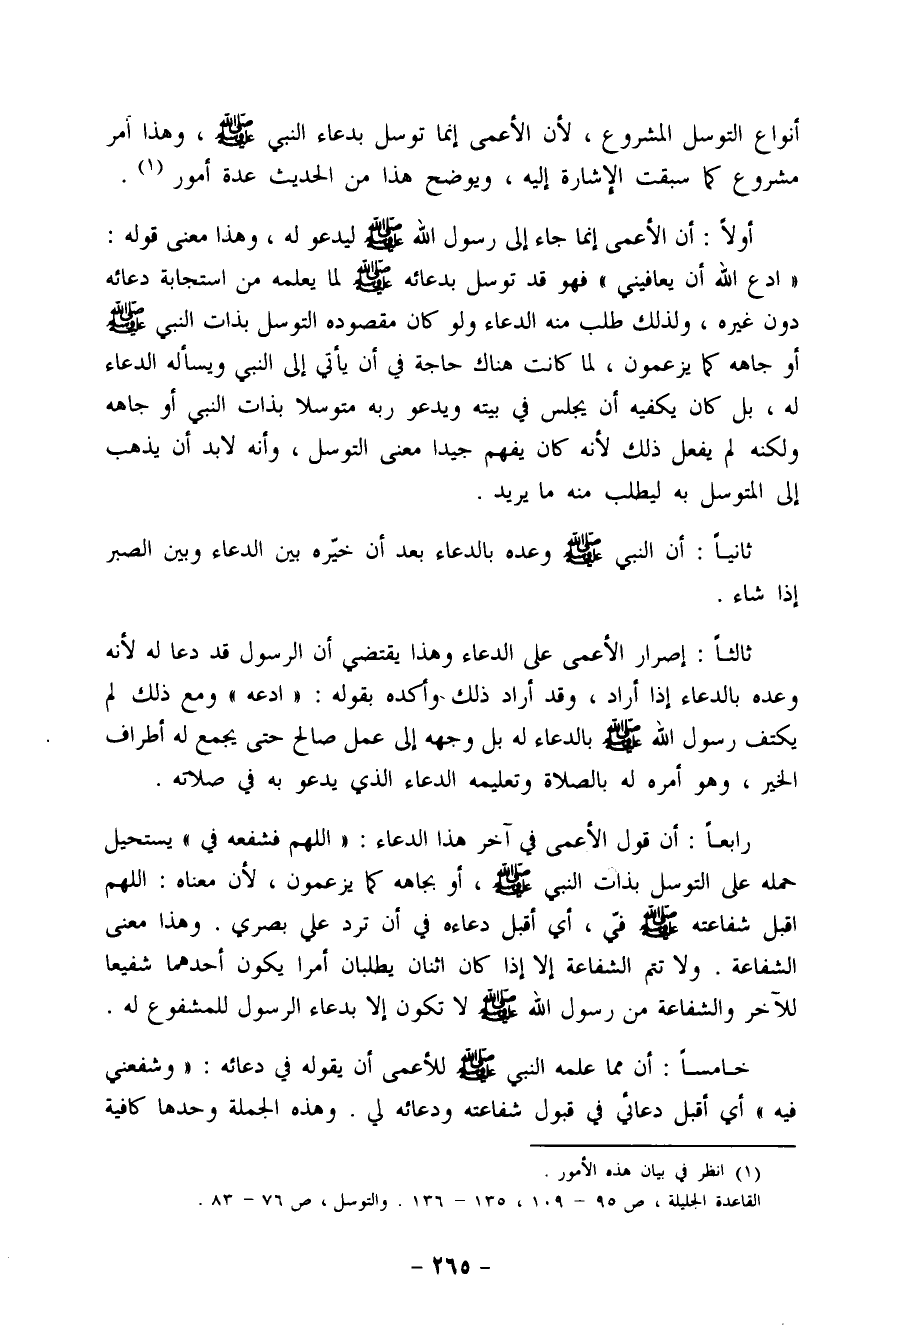 أنواع التوسل المشروع ، لأن الأعمى إنما توسل بدعاء النبي ﷺ ، وهذا أمر
مشروع كما سبقت الإشارة إليه ، ويوضح هذا من الحديث عدة أمور (١) .
أولاً : أن الأعمى إنما جاء إلى رسول الله ﷺ ليدعو له ، وهذا معنى قوله :
« ادع الله أن يعافيني » فهو قد توسل بدعائه ﷺ لما يعلمه من استجابة دعائه
دون غيره ، ولذلك طلب منه الدعاء ولو كان مقصوده التوسل بذات النبي ﷺ
أو جاهه كما يزعمون ، لما كانت هناك حاجة في أن يأتي إلى النبي ويسأله الدعاء
له ، بل كان يكفيه أن يجلس في بيته ويدعو ربه متوسلا بذات النبي أو جاهه
ولكنه لم يفعل ذلك لأنه كان يفهم جيدا معنى التوسل ، وأنه لابد أن يذهب
إلى المتوسل به ليطلب منه ما يريد .
ثانيـاً : أن النبي ﷺ وعده بالدعاء بعد أن خيّره بين الدعاء وبين الصبر
إذا شاء .
ثالثـاً : إصرار الأعمى على الدعاء وهذا يقتضي أن الرسول قد دعا له لأنه
وعده بالدعاء إذا أراد ، وقد أراد ذلك وأكده بقوله : « ادعه » ومع ذلك لم
يكتف رسول الله ﷺ بالدعاء له بل وجهه إلى عمل صالح حتى يجمع له أطراف
الخير ، وهو أمره له بالصلاة وتعليمه الدعاء الذي يدعو به في صلاته .
رابعـاً : أن قول الأعمى في آخر هذا الدعاء : « اللهم فشفعه في » يستحيل
حمله على التوسل بذات النبي ﷺ ، أو بجاهه كما يزعمون ، لأن معناه : اللهم
اقبل شفاعته ﷺ فيّ ، أي أقبل دعاءه في أن ترد علي بصري . وهذا معنى
الشفاعة . ولا تتم الشفاعة إلا إذا كان اثنان يطلبان أمرا يكون أحدهما شفيعا
للآخر والشفاعة من رسول الله ﷺ لا تكون إلا بدعاء الرسول للمشفوع له .
خـامسـاً : أن مما علمه النبي ﷺ للأعمى أن يقوله في دعائه : « وشفعني
فيه » أي أقبل دعائي في قبول شفاعته ودعائه لي . وهذه الجملة وحدها كافية
(١) انظر في بيان هذه الأمور .
القاعدة الجليلة ، ص ٩٥ – ١٠٩ ، ١٣٥ – ١٣٦ . والتوسل ، ص ٧٦ – ٨٣ .
- ٢٦٥ -